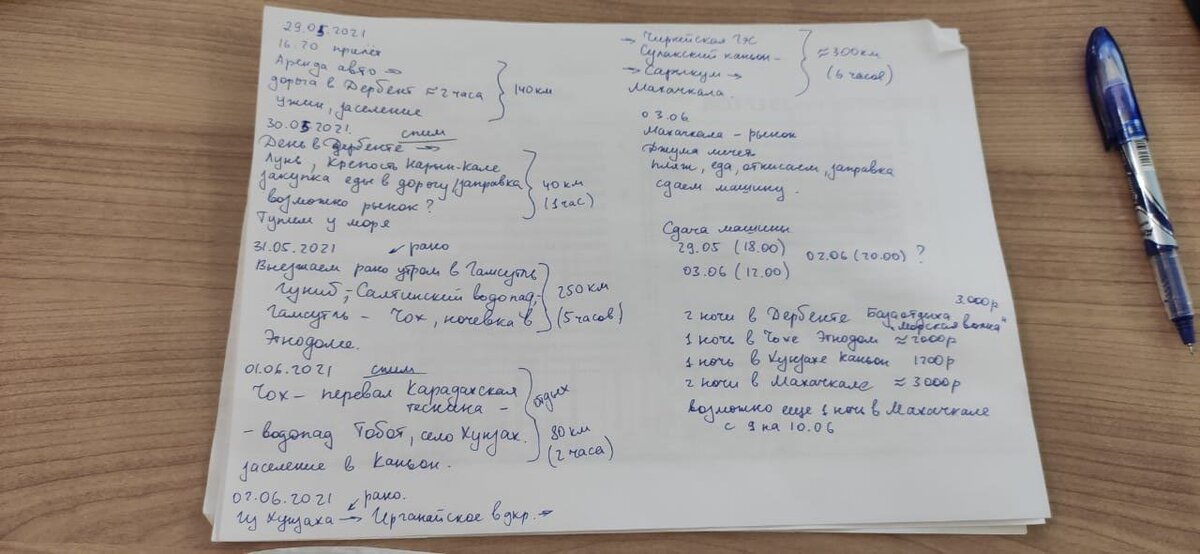 29.05.2021
16.20 прилет
Аренда авто →
дорога в Дербент ≈ 2 часа
ужин, заселение
140 км
30.05.2021. спим
День в Дербенте →
Лунь, крепость Нарын-Кале
закупка еды в дорогу/заправка
возможно рынок?
Тупим у моря
40 км
(1 час)
31.05.2021 рано
Выезжаем рано утром в Гамсутль
Гуниб, - Салтинский водопад, -
Гамсутль - Чох, ночевка в
Этнодоме.
250 км
(5 часов)
01.06.2021 спим
Чох - перевал Карадахская
теснина -
- водопад Тобот, село Хунзах.
заселение в Каньон.
отдых
80 км
(2 часа)
02.06.2021 рано.
Из Хунзаха → Ирганайское вдхр. →
→ Чиркейская ГЭС
Сулакский каньон -
→ Сарыкум →
Махачкала.
≈ 300 км
(6 часов)
03.06.
Махачкала - рынок
Джума мечеть
пляж, еда, откисаем, заправка
сдаем машину.
Сдача машины
29.05 (18.00)
03.06 (12.00)
02.06 (20.00) ?
3.000р
2 ночи в Дербенте База отдыха
"Морская волна"
1 ночь в Чохе Этнодом ≈ 2000р
1 ночь в Хунзахе Каньон 1200р
2 ночи в Махачкале ≈ 3000р
возможно еще 1 ночь в Махачкале
с 9 на 10.06